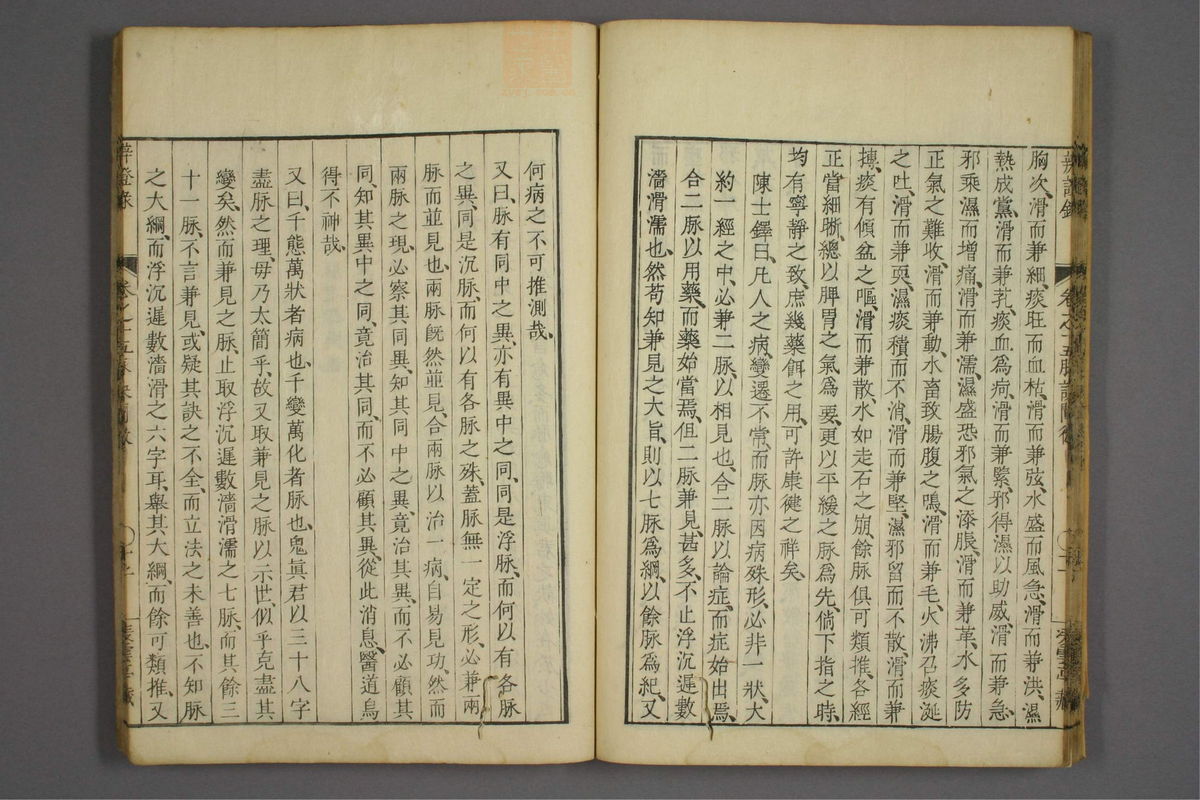 胸次、滑而兼細、痰旺而血枯、滑而兼弦、水盛而風急、滑而兼洪、濕
熱成黨、滑而兼芤、痰血為疴、滑而兼緊、邪得濕以助威、滑而兼急、
邪乘濕而增痛、滑而兼濡、濕盛恐邪氣之添脹、滑而兼革、水多防
正氣之難收、滑而兼動、水畜致腸腹之鳴、滑而兼毛、火沸召痰涎
之吐、滑而兼耎、濕痰積而不消、滑而兼堅、濕邪留而不散、滑而兼
摶、痰有傾盆之嘔、滑而兼散、水如走石之崩、餘脉俱可類推、各經
正當細晰、總以脾胃之氣為要、更以平緩之脉為先、倘下指之時、
均有寧靜之致、庶幾藥餌之用、可許康健之祥矣、
陳士鐸曰、凡人之病、變遷不常、而脉亦因病殊形、必非一狀、大
約一經之中、必兼二脉、以相見也、合二脉以論症、而症始出焉、
合二脉以用藥、而藥始當焉、但二脉兼見、甚多、不止浮沉遲數
濇滑濡也、然苟知兼見之大旨、則以七脉爲綱、以餘脉爲紀、又
何病之不可推測哉、
又曰、脉有同中之異、亦有異中之同、同是浮脉、而何以有各脉
之異、同是沉脉、而何以有各脉之殊、蓋脉無一定之形、必兼兩
脉而並見也、兩脉既然並見、合兩脉以治一病、自易見功、然而
兩脉之現、必察其同異、知其同中之異、竟治其異、而不必顧其
同、知其異中之同、竟治其同、而不必顧其異、從此消息、醫道烏
得不神哉、
又曰、千態萬狀者病也、千變萬化者脉也、鬼眞君以三十八字
盡脉之理、毋乃太簡乎、故又取兼見之脉以示世、似乎克盡其
變矣、然而兼見之脉、止取浮沉遲數濇滑濡之七脉、而其餘三
十一脉、不言兼見、或疑其訣之不全、而立法之未善也、不知脉
之大綱、而浮沉遲數濇滑之六字耳、舉其大綱、而餘可類推、又